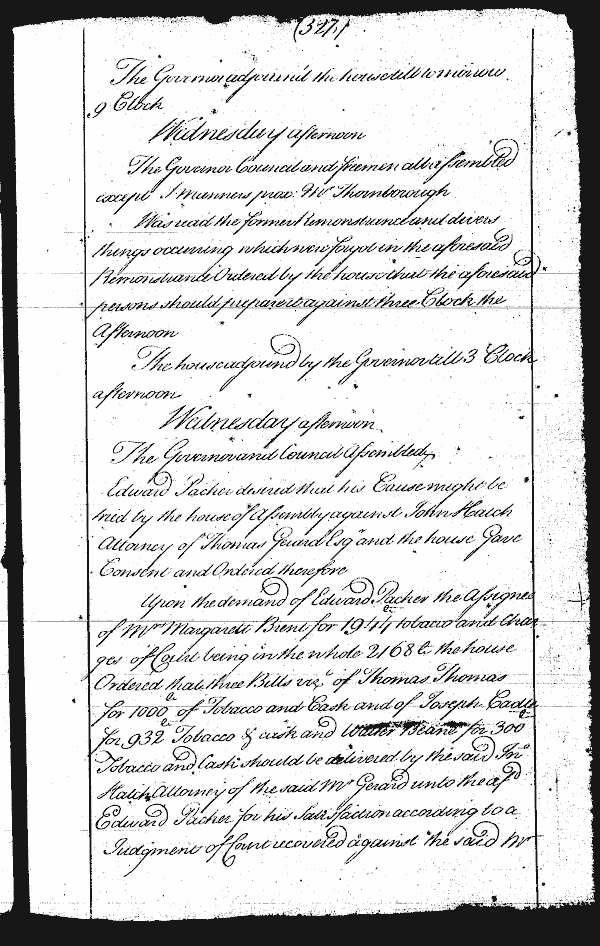 (327)
The Governor adjourn'd the house till to morrow
9 Clock
Wednesday afternoon
The Governor Council and freemen all assembled
except J manners prox: Mr Thornborough
Was read the former remonstrance and divers
things occurring which were forgot in the aforesaid
Remonstrance Ordered by the house that the aforesaid
persons should prepare it against three Clock the
Afternoon
The house adjound by the Governor till 3 Clock
afternoon
Wednesday afternoon
The Governor and Council Assembled
Edward Packer desired that his Cause might be
tried by the house of Assembly against John Hatch
Attorney of Thomas Gerard Esqr and the house Gave
Consent and Ordered therefore
Upon the demand of Edward Packer the Assignee
of Mrs Margarett Brent for 1944 tobacco and Char
ges of Court being in the whole 2168 lt. the house
Ordered that three Bills vizt of Thomas Thomas
for 1000 lt of Tobacco and Cask and of Joseph Cadle
for 932 lt Tobacco & cask and Walter Beane for 300 lt
Tobacco and Cask should be delivered by the said Jno
Hatch Attorney of the said Mr Gerard unto the afsd
Edward Packer for his Satisfaction according to a
Judgment of Court recovered against the said Mr